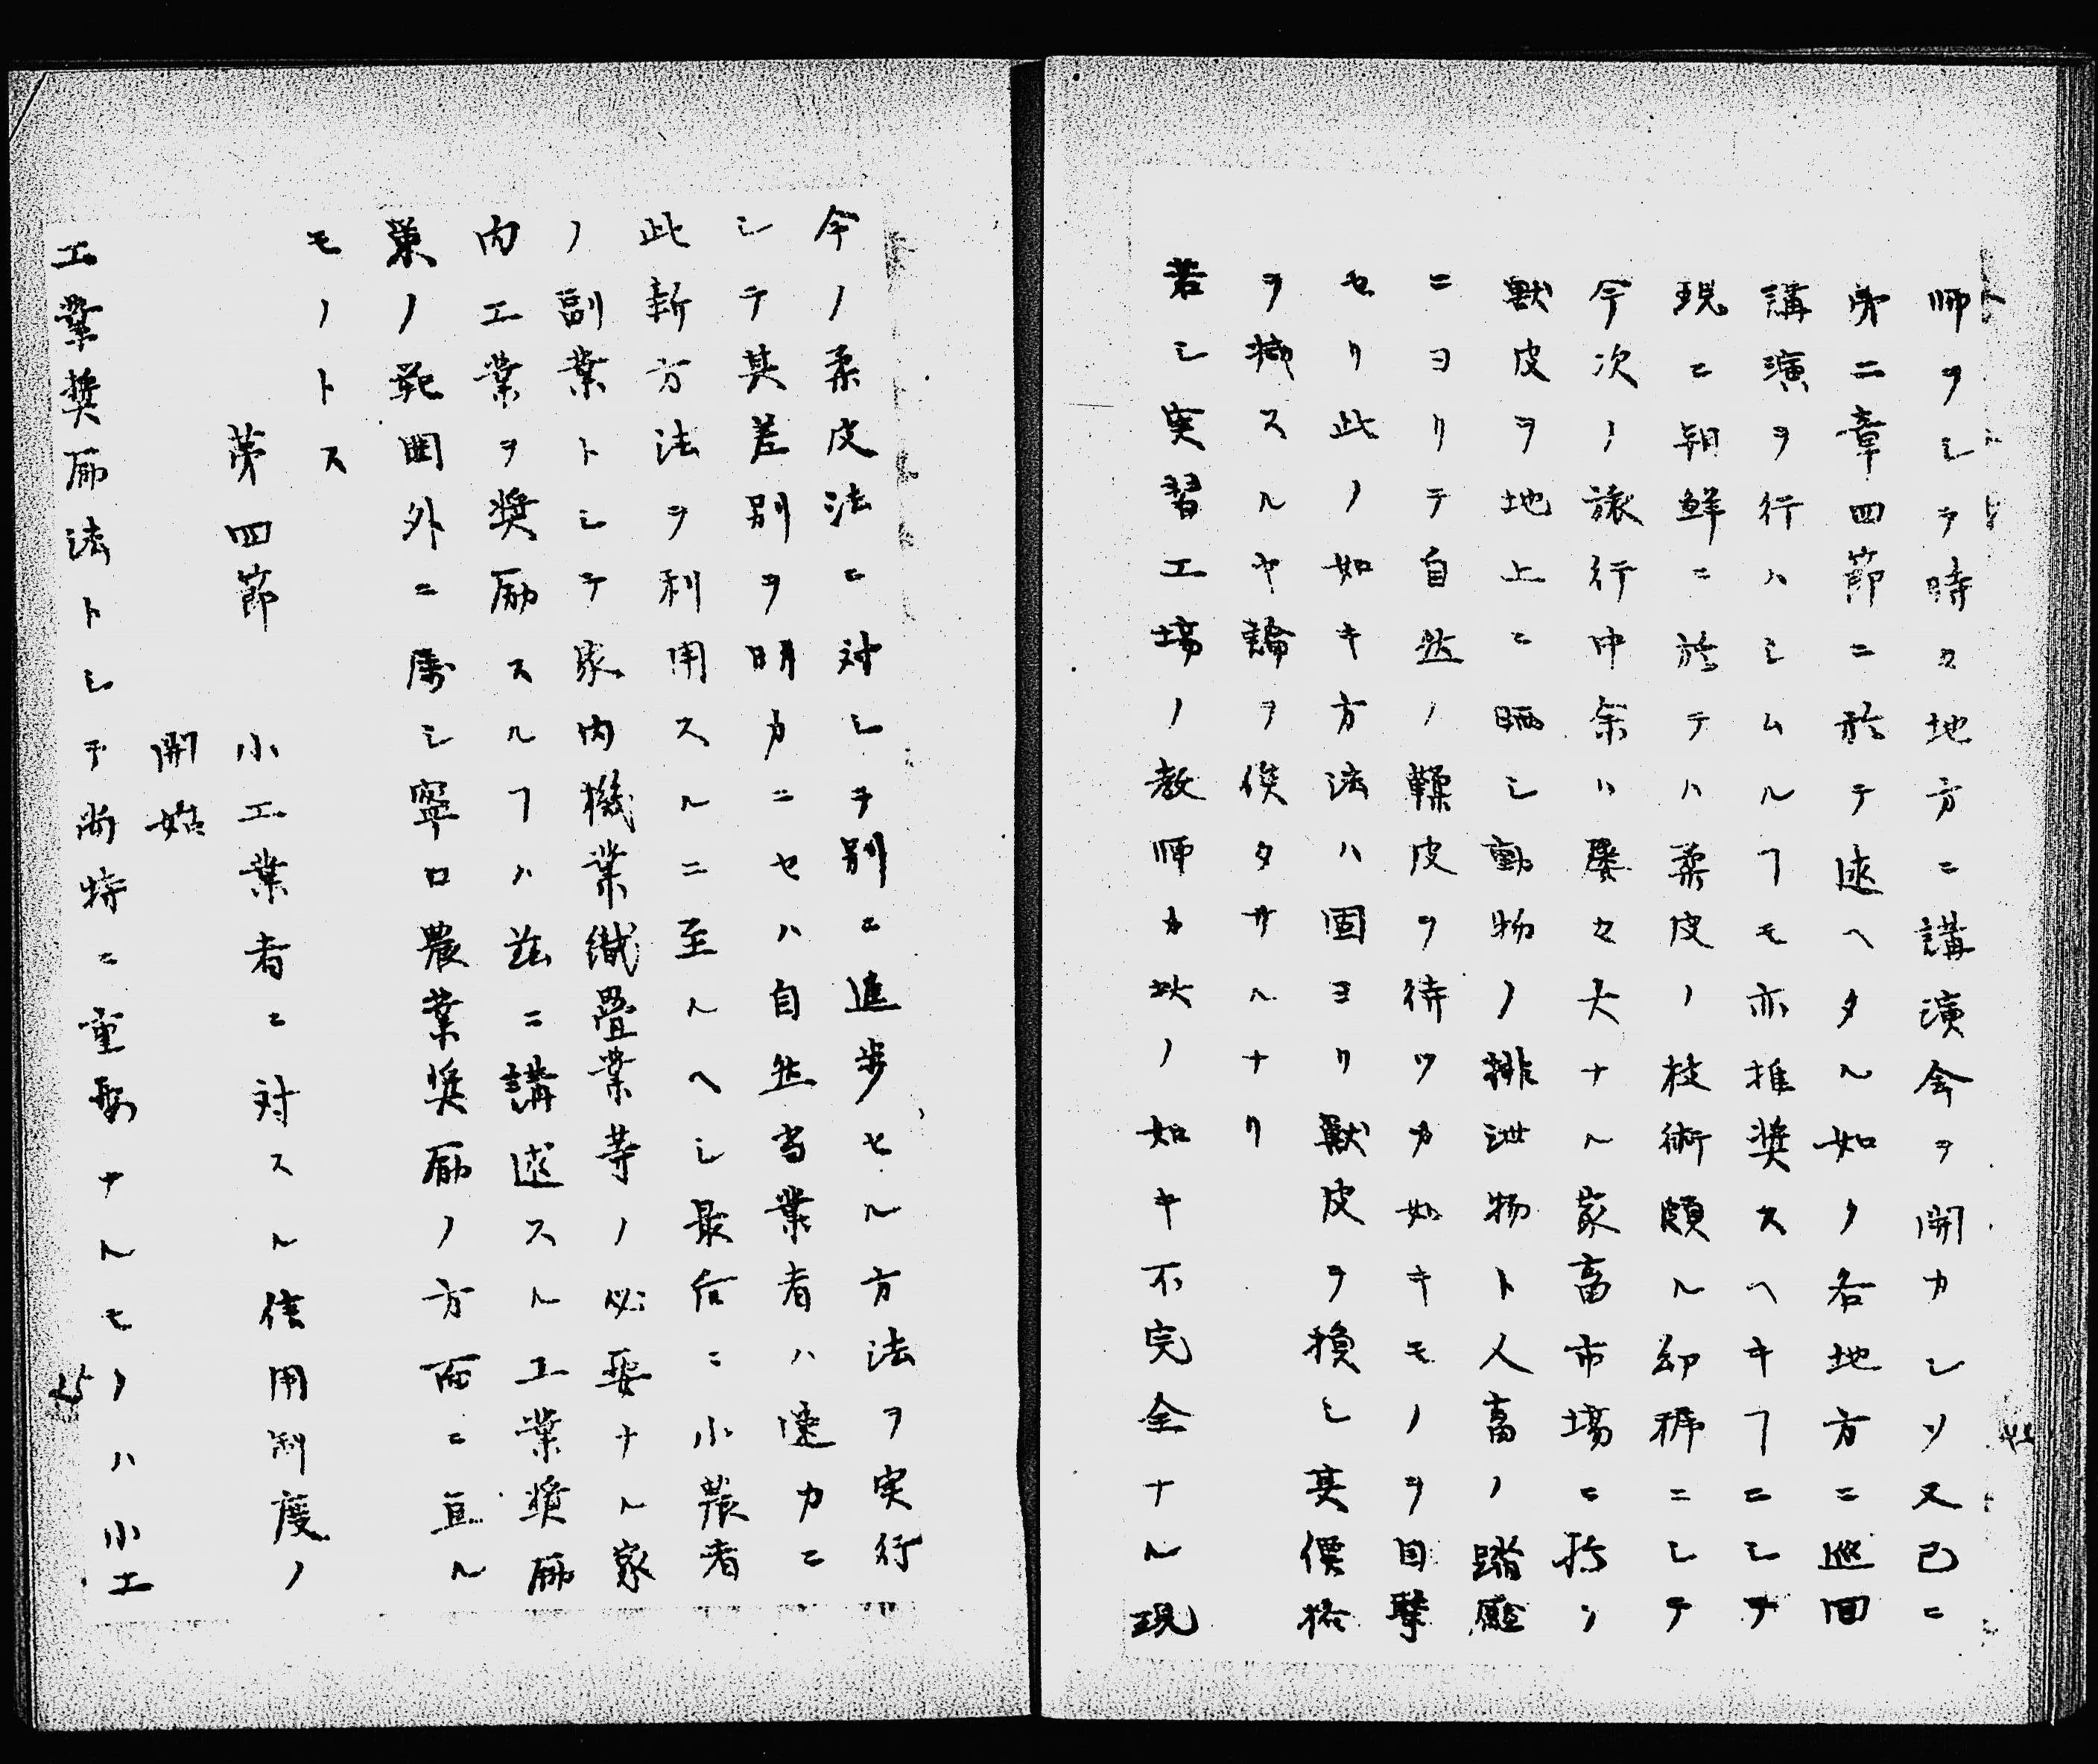 師ヲシテ時々地方ニ講演会ヲ開カシメ又已ニ
第二章四節ニ於テ述ヘタル如ク各地方ニ巡回
講演ヲ行ハシムルヿモ亦推奨スヘキヿニシテ
現ニ朝鮮ニ於テハ柔皮ノ技術頗ル幼稚ニシテ
今次ノ旅行中余ハ屡々大ナル家畜市場ニ於テ
獣皮ヲ地上ニ晒シ動物ノ排泄物ト人畜ノ踏圧
ニヨリテ自然ノ鞣皮ヲ待ツカ如キモノヲ目撃
セリ此ノ如キ方法ハ固ヨリ獣皮ヲ損シ其價格
ヲ減スルヤ論ヲ俟タサルナリ
若シ実習工場ノ教師カ此ノ如キ不完全ナル現
今ノ柔皮法ニ対シテ別ニ進歩セル方法ヲ実行
シテ其差別ヲ明カニセハ自然当業者ハ速カニ
此新方法ヲ利用スルニ至ルヘシ最后ニ小農者
ノ副業トシテ家内機業織畳業等ノ必要ナル家
内工業ヲ奨励スルヿハ茲ニ講述スル工業奨励
策ノ範囲外ニ属シ寧ロ農業奨励ノ方面ニ亘ル
モノトス
第四節 小工業者ニ対スル信用制度ノ
開始
工業奨励法トシテ尚特ニ重要ナルモノハ小工